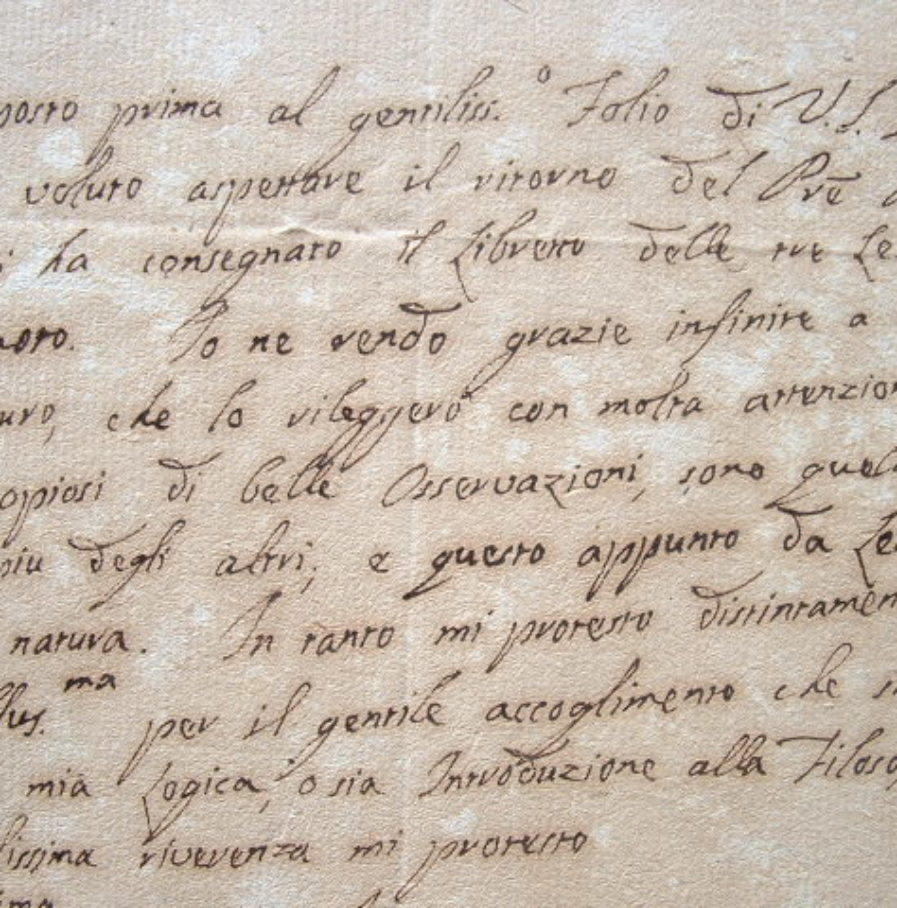 posto prima al gentiliss.° Folio di V.S.
voluto aspettare il ritorno del Pre
ha consegnato il Libretto delle tre Le
Io ne rendo grazie infinite a
che lo rileggerò con molta attenzion
opiosi di belle Osservazioni, sono quel
piu degli altri, e questo appunto da Le
natura. In tanto mi protesto distintamen
llus.ma per il gentile accoglimento che
mia Logica, o sia Introduzione alla Filoso
lissima riverenza mi protesto